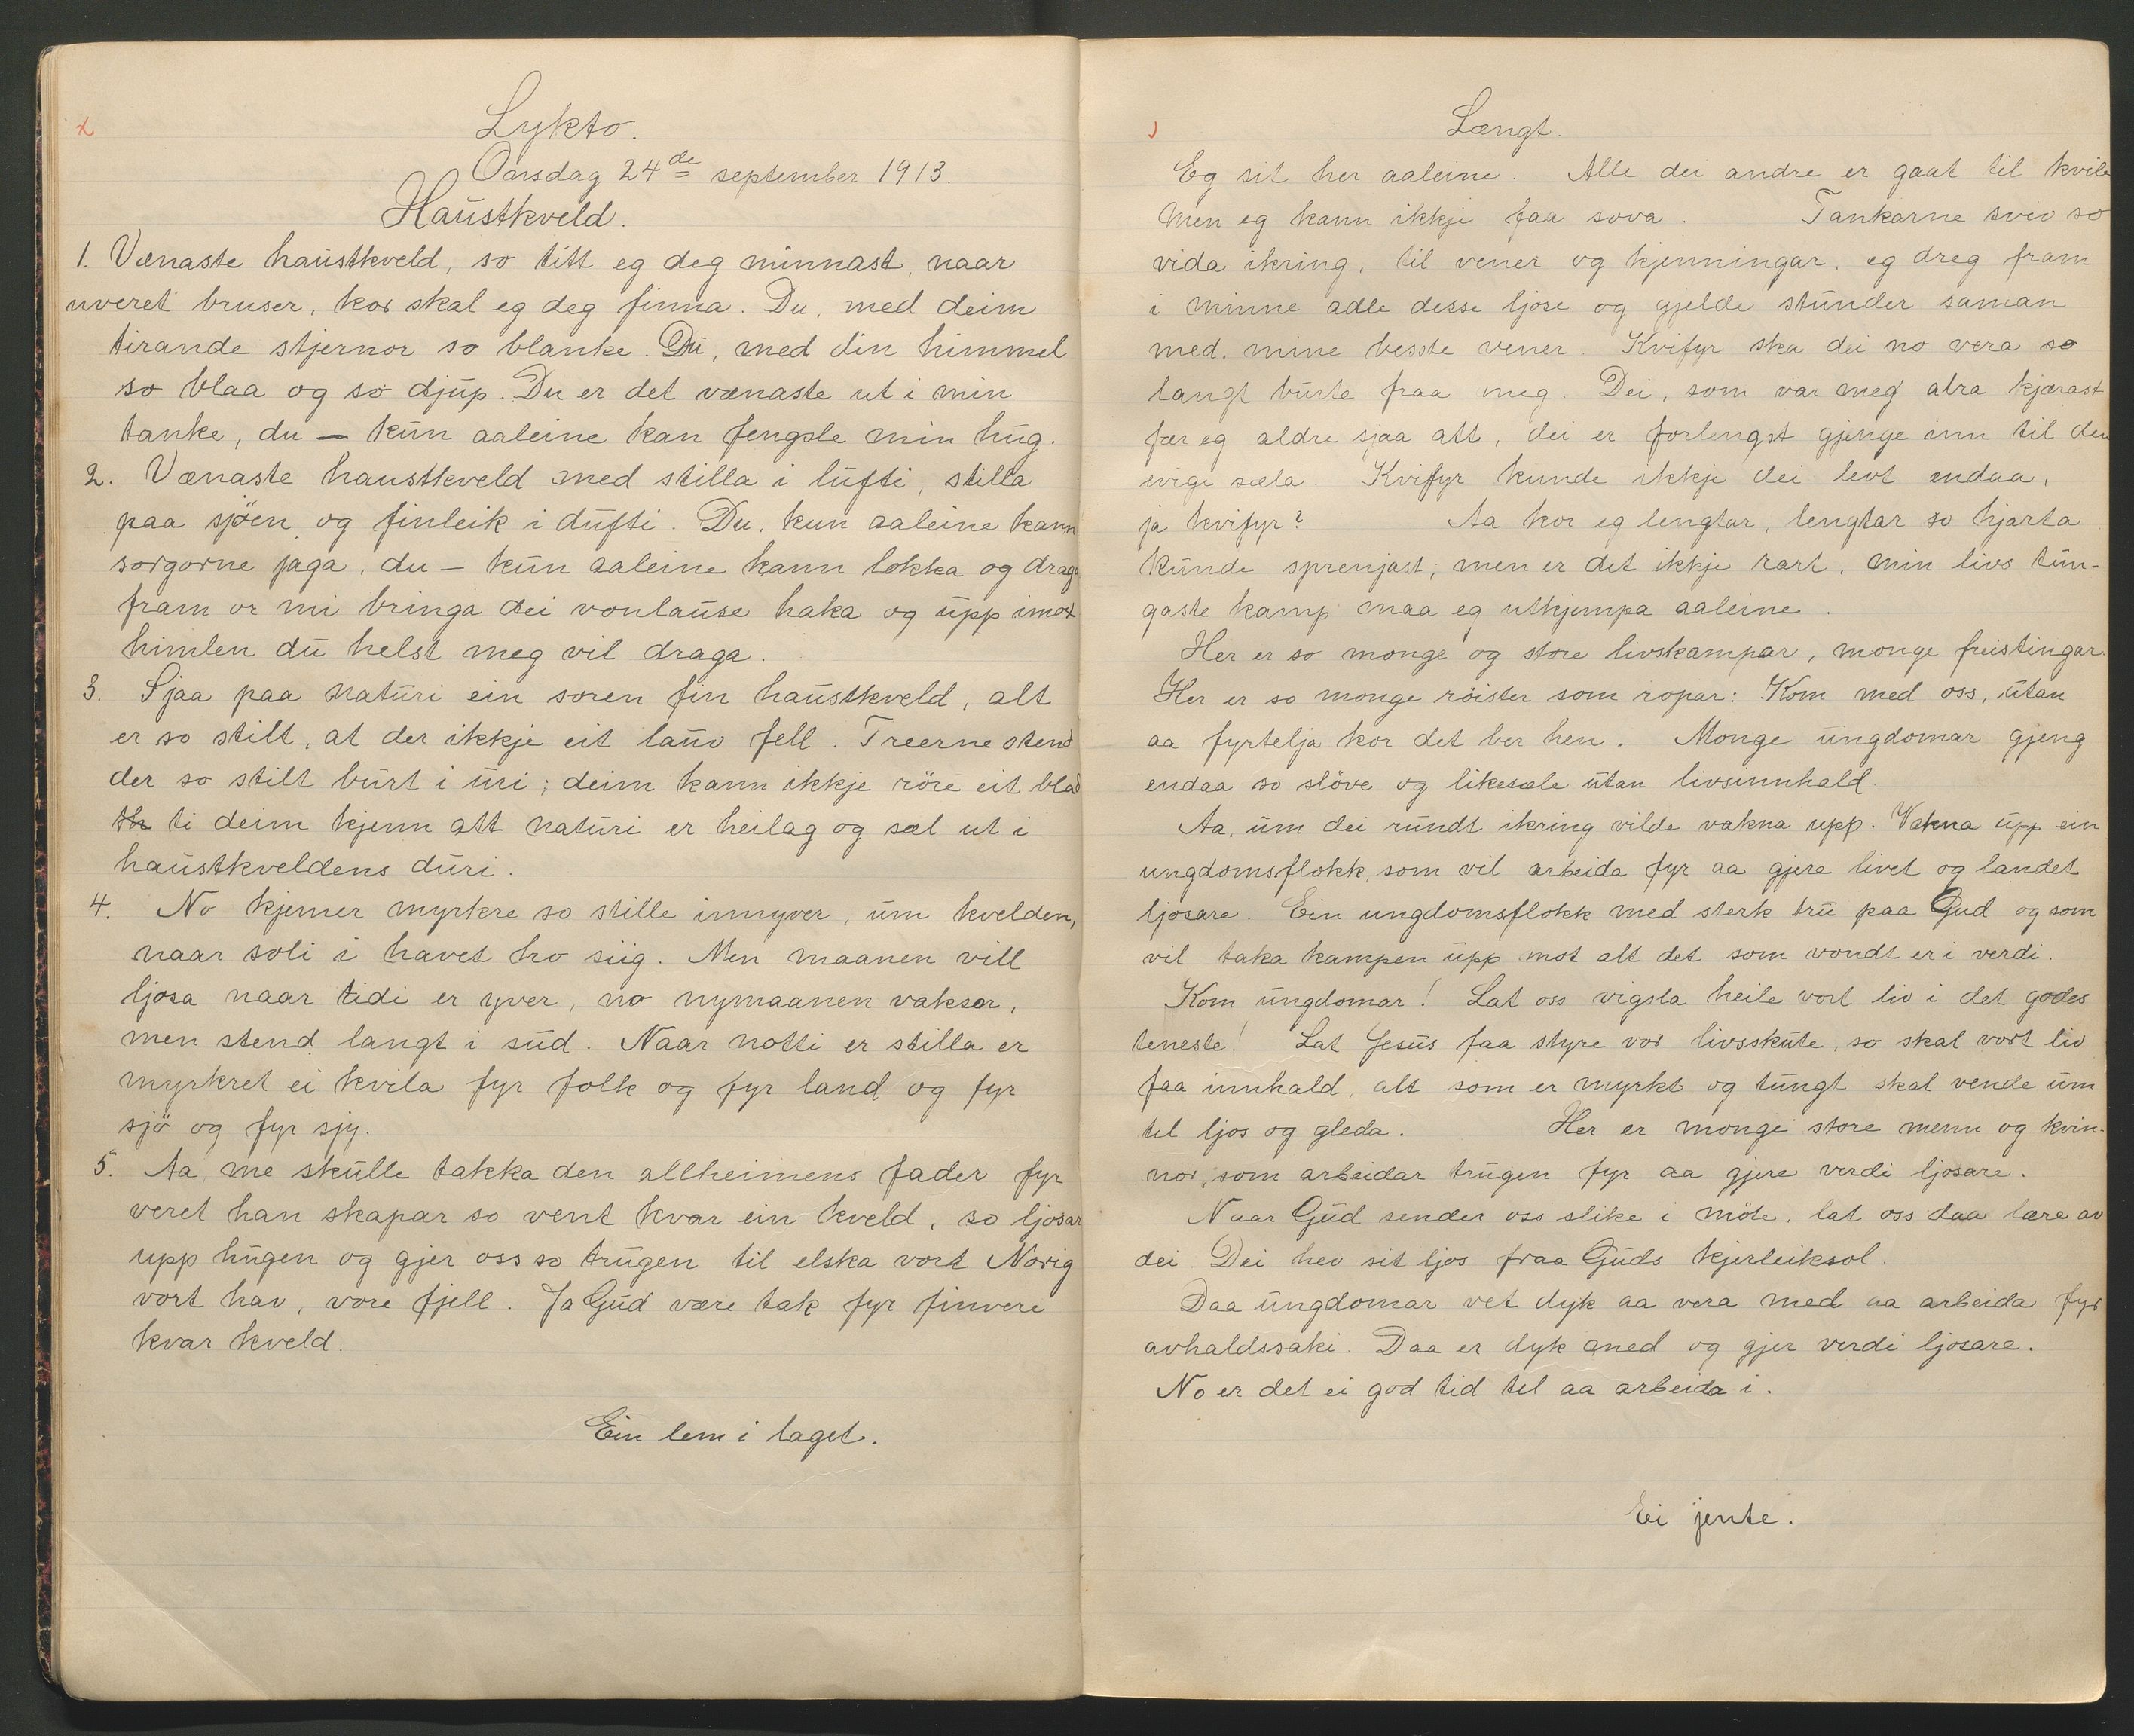 Lykto.
Onsdag 24de september 1913.
Haustkveld.
1. Vænaste haustkveld, so titt eg deg minnast, naar
uveret bruser, kor skal eg deg finna. Du, med deim
tirande stjernor so blanke. Du, med din himmel
so blaa og so djup. Du er det vænaste ut i min
tanke, du — kun aaleine kan fengsle min hug.
2. Vænaste haustkveld med stilla i lufti, stilla
paa sjöen og finleik i dufti. Du. kun aaleine kann
sorgorne jaga, du — kun aaleine kann lokka og draga
fram or mi bringa dei vonlause haka og upp imot
himlen du helst meg vil draga.
3. Sjaa paa naturi ein soren fin haustkveld, alt
er so stilt, at der ikkje eit lauv fell. Treerne stend
der so stilt burt i uri; deim kann ikkje röre eit blad
ti deim kjenn att naturi er heilag og sæl ut i
haustkveldens duri.
4. No kjemer myrkre so stille innyver, um kvelden,
naar soli i havet ho siig. Men maanen vill
ljosa naar tidi er yver, no nymaanen vakser,
men stend langt i sud. Naar notti er stilla er
myrkret ei kvila fyr folk og fyr land og fyr
sjö og fyr sjy.
5. Aa, me skulle takka den allheimens fader fyr
veret han skapar so vent kvar ein kveld, so ljosar
upp hugen og gjer oss so trugen til elska vort Norig
vort hav, vore fjell. Ja Gud være tak fyr finvere
kvar kveld.
Ein lem i laget.
Længt.
Eg sit her aaleine. Alle dei andre er gaat til kvile
men eg kann ikkje faa sova. Tankarne sviv so
vida ikring, til vener og kjenningar, eg dreg fram
i minne adle desse ljose og gjelde stunder saman
med. mine beste vener. Kvifyr ska dei no vera so
langt burte fraa meg. Dei, som var meg alra kjærast
fær eg aldre sjaa att, dei er forlengst gjenge inn til den
evige sæla. Kvifyr kunde ikkje dei levt endaa,
ja kvifyr? Aa kor eg lengtar, lengtar so hjarta
kunde sprenjast; men er det ikkje rart, min livs tun-
gaste kamp maa eg utkjempa aaleine.
Her er so monge og store livskampar, monge freistingar.
Her er so monge röister som ropar: Kom med oss, utan
aa fyrtelja kor det ber hen. Monge ungdomar gjeng
endaa so slöve og likesæle utan livsinnhald.
Aa, um dei rundt ikring vilde vakna upp. Vakna upp ein
ungdomsflokk, som vil arbeida fyr aa gjera livet og landet
ljosare. Ein ungdomsflokk med sterk tru paa Gud og som
vil taka kampen upp mot alt det som vondt er i verdi.
Kom ungdomar! Lat oss vigsla heile vort liv i det godes
teneste! Lat Jesus faa styre vor livsskute, so skal vort liv
faa innhald, alt som er myrkt og tungt skal vende um
til ljos og gleda. Her er monge store menn og kvin-
nor, som arbeidar trugen fyr aa gjere verdi ljosare.
Naar Gud sender oss slike i möte, lat oss daa lære av
dei. Dei hev sit ljos fraa Guds kjerleiksol.
Daa ungdomar vet dyk aa vera med aa arbeida fyr
avhaldssaki. Daa er dyk med og gjer verdi ljosare.
No er det ei god tid tel aa arbeida i.
Ei jente.